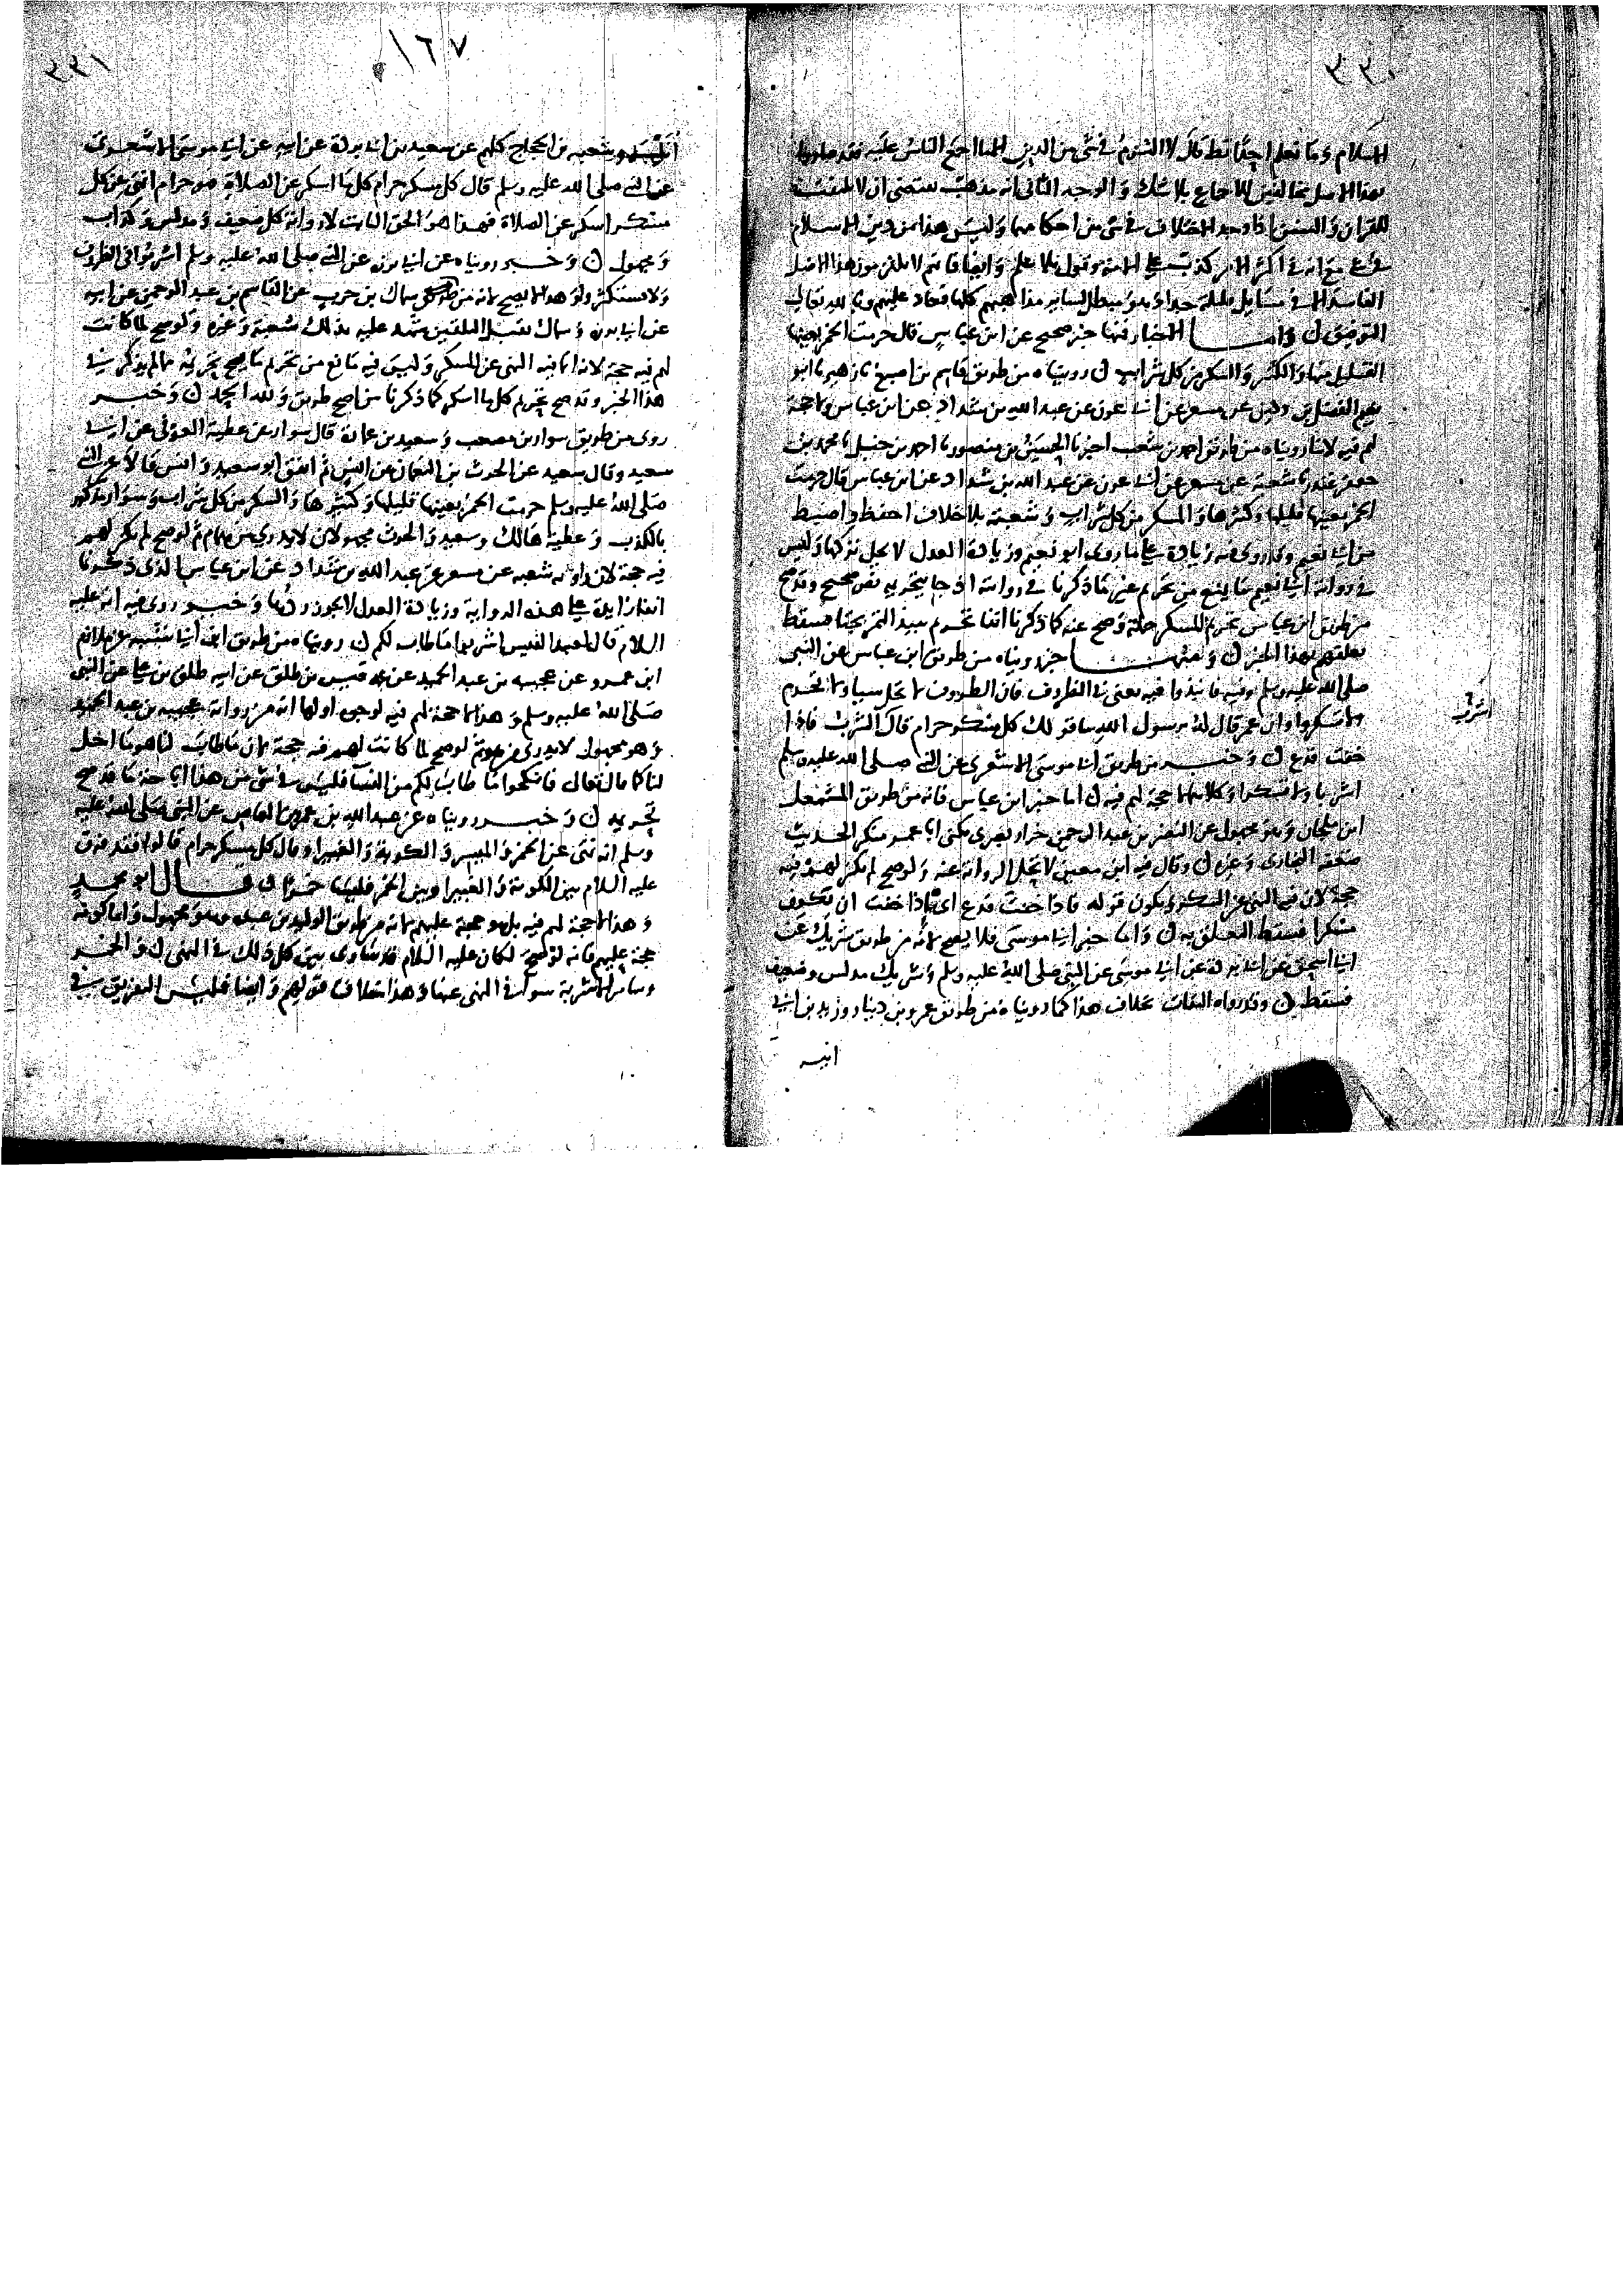 ٣٣٠
الاسلام وما نعلم احدا قط قال لا التزم في شي من الدين الا ما اجمع الناس عليه فقد صاروا
بهذا الاصل مخالفين للاجماع بلا شك والوجه الثاني انه مذهب يقتضي ان لا يلتفت
للقران والسنن اذا وجد الاختلاف في شي من احكامهما وليس هذا من دين الاسلام
في شي مع انه في اكثر الامر كذب على الامة وقول بلا علم وايضا فانهم لا يلتزمون هذا الاصل
الفاسد الا في مسايل قليلة جدا وهو مبطل لساير مذاهبهم كلها فعاد عليهم وبالله تعالى
التوفيق واما الاخبار فمنها خبر صحيح عن ابن عباس قال حرمت الخمر بعينها
القليل منها والكثير والسكر من كل شراب رويناه من طريق قاسم بن اصبغ نا زهير نا ابو
نعيم الفضل بن دكين عن مسعر عن ابي عون عن عبد الله بن شداد عن ابن عباس ولا حجة
لهم فيه لاننا رويناه من طريق احمد بن شعيب اخبرنا الحسين بن منصور نا احمد بن حنبل نا محمد بن
جعفر غندر نا شعبة عن مسعر عن ابي عون عن عبد الله بن شداد عن ابن عباس قال حرمت
الخمر بعينها قليلها وكثيرها والمسكر من كل شراب وشعبة بلا خلاف احفظ واضبط
من ابي نعيم وقد روى فيه زيادة على ما روى ابو نعيم وزيادة العدل لا يحل تركها وليس
في رواية ابي نعيم ما يمنع من تحريم غير ما ذكرنا في روايته اذ جا بتحريمه نص صحيح وقد صح
من طريق ابن عباس تحريم المسكر جملة وصح عنه كما ذكرنا انفا تحريم نبيذ التمر بحتا فسقط
تعلقهم بهذا الخبر ومنها خبر رويناه من طريق ابن عباس عن النبي
صلى الله عليه وسلم وفيه فانبذوا فيه يعني في الظروف فان الظروف لا تحل شيا ولا تحرم
ولا تسكروا وان عمر قال له يا رسول الله ما قولك كل مسكر حرام قال اشرب فاذا
اشرب
خفت فدع وخبر من طريق ابي موسى الاشعري عن النبي صلى الله عليه وسلم
اشربا ولا تسكرا وكلاهما لا حجة لهم فيه اما خبر ابن عباس فانه من طريق المشمعل
ابن ملحان وهو مجهول عن النضر بن عبد الرحمن خزاز بصري يكنى ابا عمر منكر الحديث
ضعفه البخاري وغيره وقال فيه ابن معين لا تحل الرواية عنه ولو صح لم يكن لهم فيه
حجة لان فيه النهي عن السكر ويكون قوله فاذا خفت فدع اي اذا خفت ان تكون
مسكرا فسقط التعلق به واما خبر ابي موسى فلا يصح لانه من طريق شريك عن
ابي اسحق عن ابي بردة عن ابي موسى عن النبي صلى الله عليه وسلم وشريك مدلس وضعيف
فسقط وقد رواه الثقات بخلاف هذا كما رويناه من طريق عمرو بن دينار وزيد بن ابي
انيسه
٣٣١
١٦٧
انيسة وشعبه بن الحجاج كلهم عن سعيد بن ابي بردة عن ابيه عن ابي موسى الاشعري
عن النبي صلى الله عليه وسلم قال كل مسكر حرام كل ما اسكر عن الصلاة فهو حرام انهى عن كل
مسكر اسكر عن الصلاة فهذا هو الحق الثابت لا رواية كل ضعيف ومدلس وكذاب
ومجهول وخبر رويناه عن ابي بردة عن النبي صلى الله عليه وسلم اشربوا في الظروف
ولا تسكروا وهذا لا يصح لانه من طريق سماك بن حرب عن القاسم بن عبد الرحمن عن ابيه
عن ابي بردة وسماك يقبل التلقين شهد عليه بذلك شعبة وغيره ولو صح لما كانت
لهم فيه حجة لانه انما فيه النهي عن المسكر وليس فيه مانع من تحريم ما صح تحريمه مما لم يذكر في
هذا الخبر وقد صح تحريم كل ما اسكر كما ذكرنا من اصح طريق ولله الحمد وخبر
روى من طريق سوار بن مصعب وسعيد بن عمارة قال سوار عن عطية العوفي عن ابي
سعيد وقال سعيد عن الحرث بن النعمان عن انس ثم اتفق ابو سعيد وانس قالا عن النبي
صلى الله عليه وسلم حرمت الخمر بعينها قليلها وكثيرها والسكر من كل شراب وسوار مذكور
بالكذب وعطية هالك وسعيد والحرث مجهولان لا يدرى من هما ثم لو صح لم يكن لهم
فيه حجة لان رواية شعبه عن مسعر عن عبد الله بن شداد عن ابن عباس الذي ذكرنا
انفا زايدة على هذه الرواية وزيادة العدل لا يجوز ردها وخبر روى فيه انه عليه
السلام قال لعبد القيس اشربوا ما طاب لكم رويناه من طريق ابن ابي شيبه عن ملازم
ابن عمرو عن عجيبه بن عبد الحميد عن عمه قيس بن طلق عن ابيه طلق بن علي عن النبي
صلى الله عليه وسلم وهذا لا حجة لهم فيه لوجهين اولها انه من رواية عجيبه بن عبد الحميد
وهو مجهول لا يدرى من هو ثم لو صح لما كانت لهم فيه حجة لان ما طاب لنا هو ما احل
لنا كما قال تعالى فانكحوا ما طاب لكم من النسا فليس في شي من هذا اباحة ما قد صح
تحريمه وخبر رويناه عن عبد الله بن عمرو بن العاص عن النبي صلى الله عليه
وسلم انه نهى عن الخمر والميسر والكوبة والغبيرا وقال كل مسكر حرام قالوا فقد فرق
عليه السلام بين الكوبة والغبيرا وبين الخمر فليسا خمرا قال ابو محمد
وهذا لا حجة لهم فيه بل هو حجة عليهم لانه من طريق الوليد بن عبده وهو مجهول واما كونه
حجة عليهم فانه لو صح لكان عليه السلام قد ساوى بين كل ذلك في النهي والخمر
وساير الاشربة سوا في النهي عنها وهذا خلاف قولهم وايضا فليس التفريق في